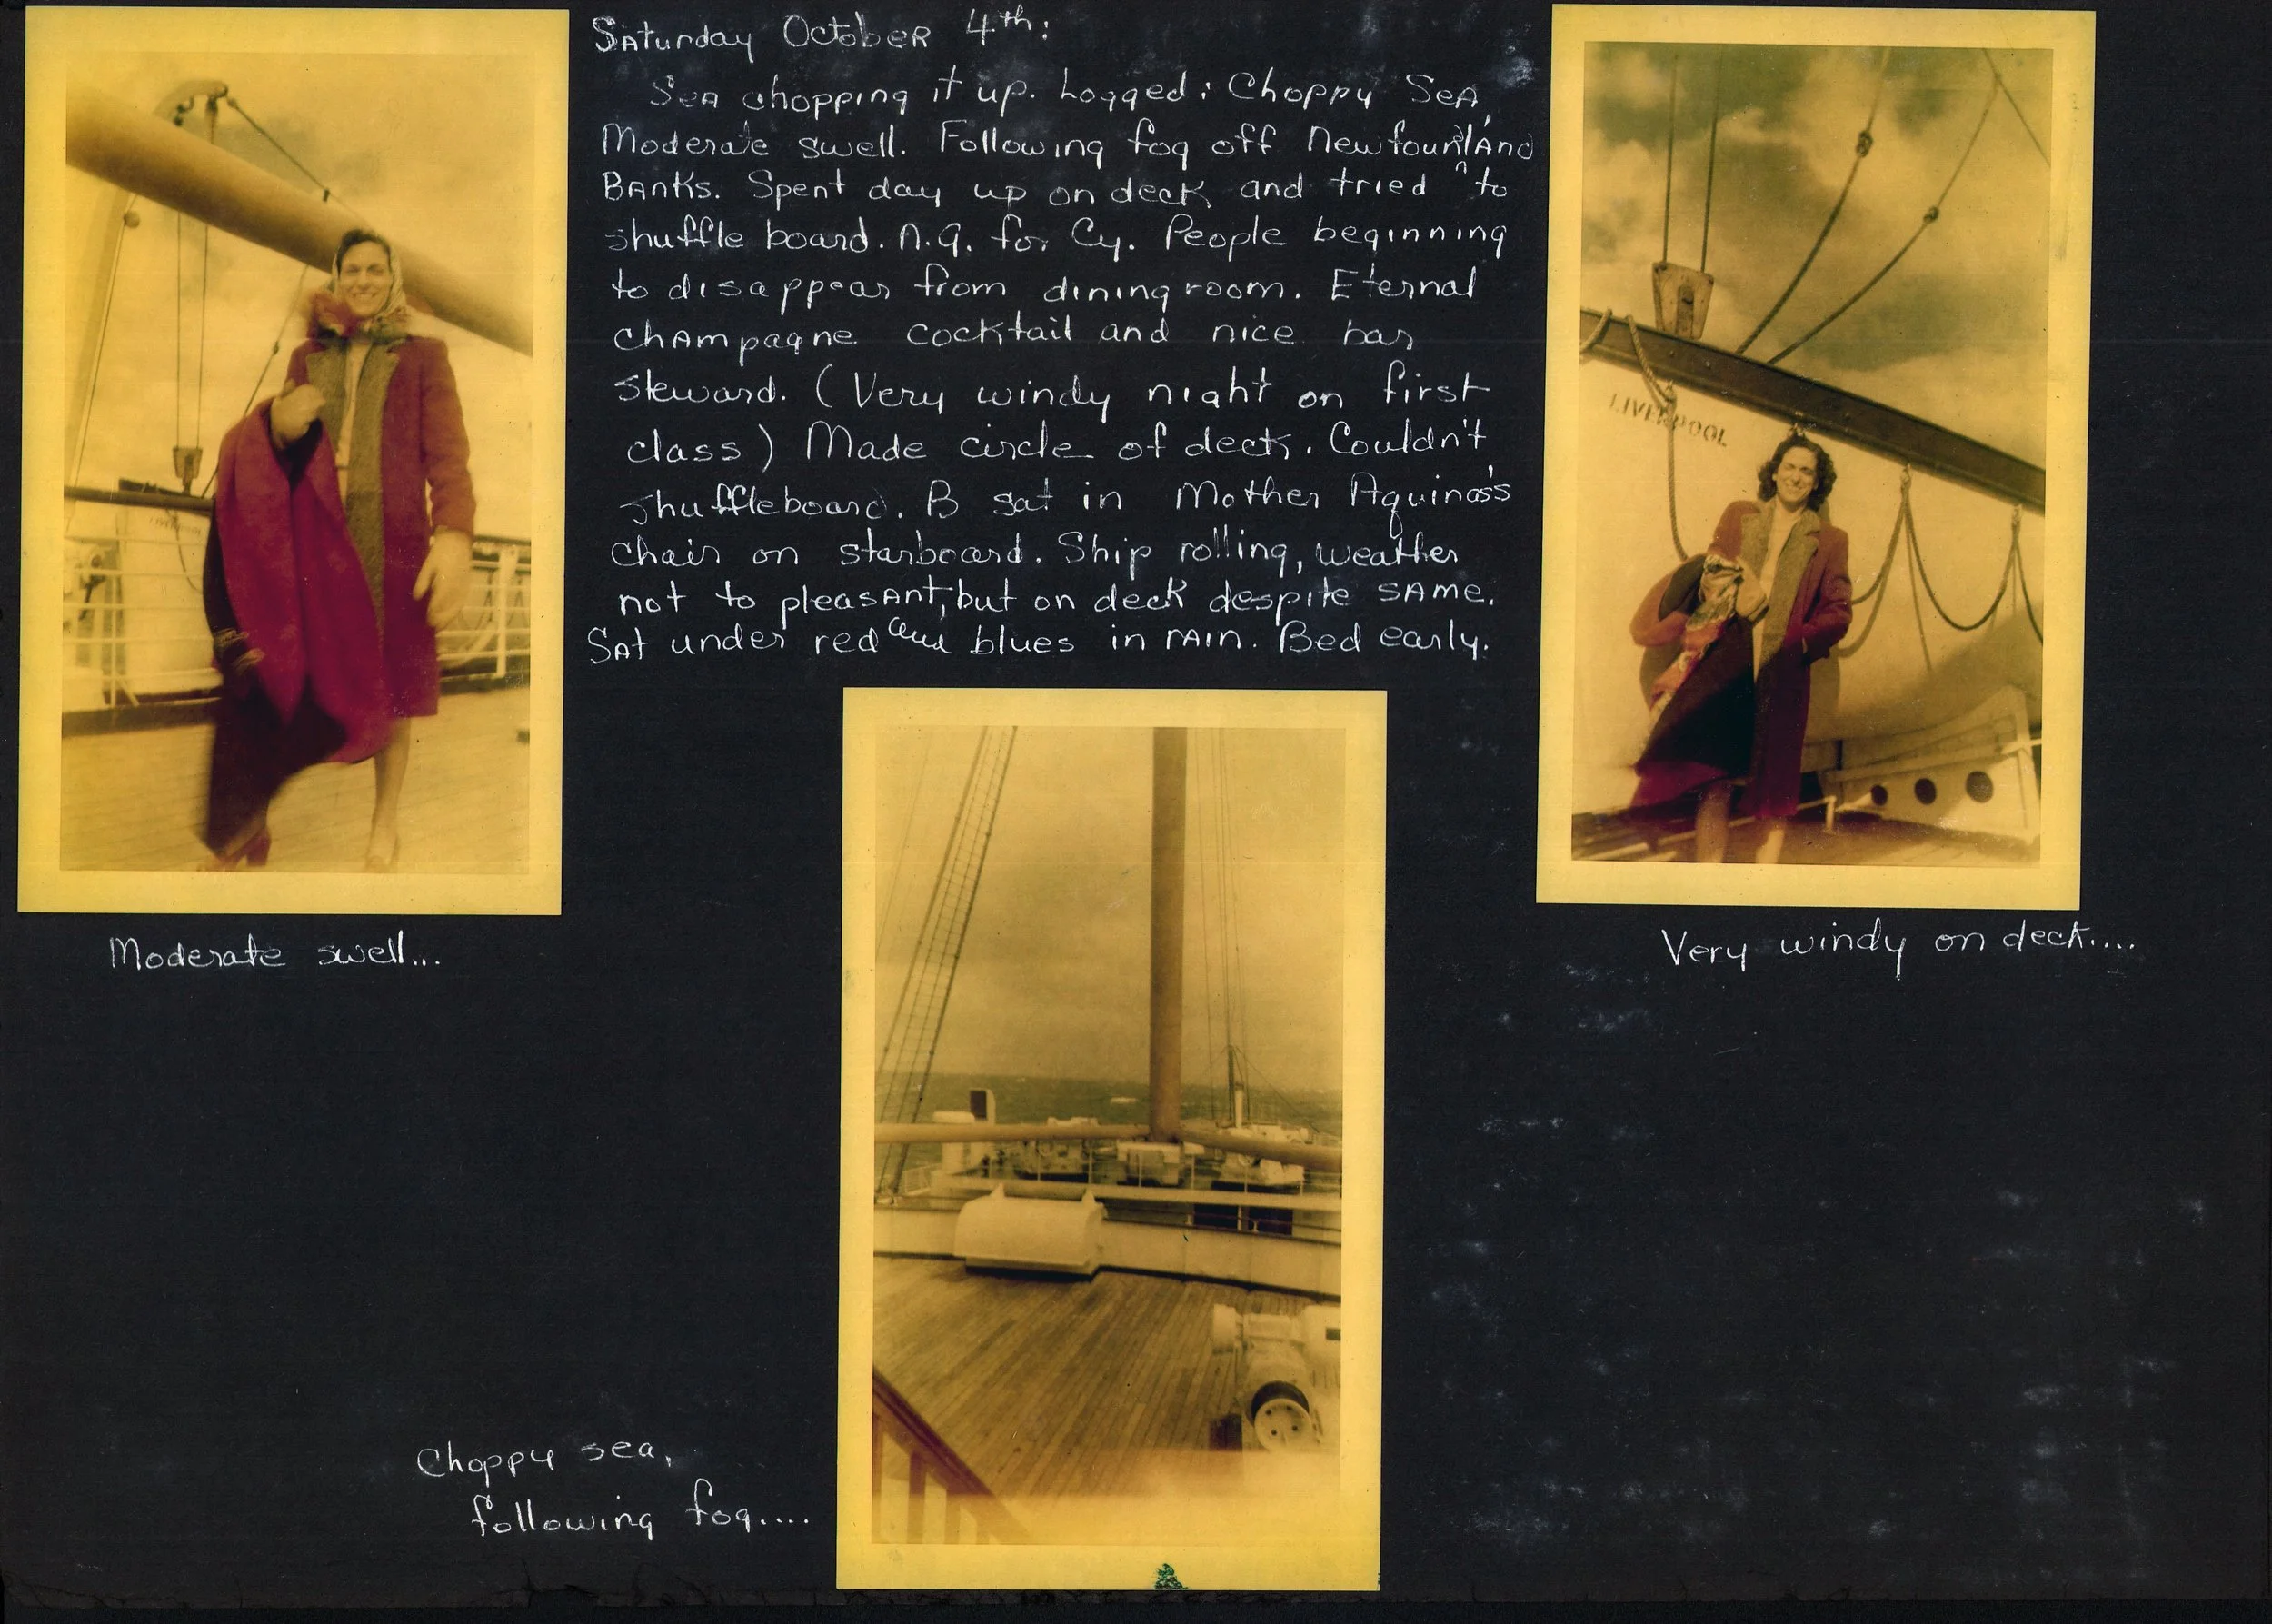 Saturday October 4th:
Sea chopping it up. Logged: Choppy Sea,
Moderate swell. Following fog off Newfounland
Banks. Spent day up on deck and tried to
shuffle board. N.G. for Cy. People beginning
to disappear from dining room. Eternal
champagne cocktail and nice bar
steward. (Very windy night on first
class) Made circle of deck. Couldn't
shuffleboard. B sat in Mother Aquinas's
chair on starboard. Ship rolling, weather
not to pleasant, but on deck despite same.
Sat under red and blues in rain. Bed early.
LIVERPOOL
Moderate swell...
Very windy on deck....
Choppy sea,
following fog....